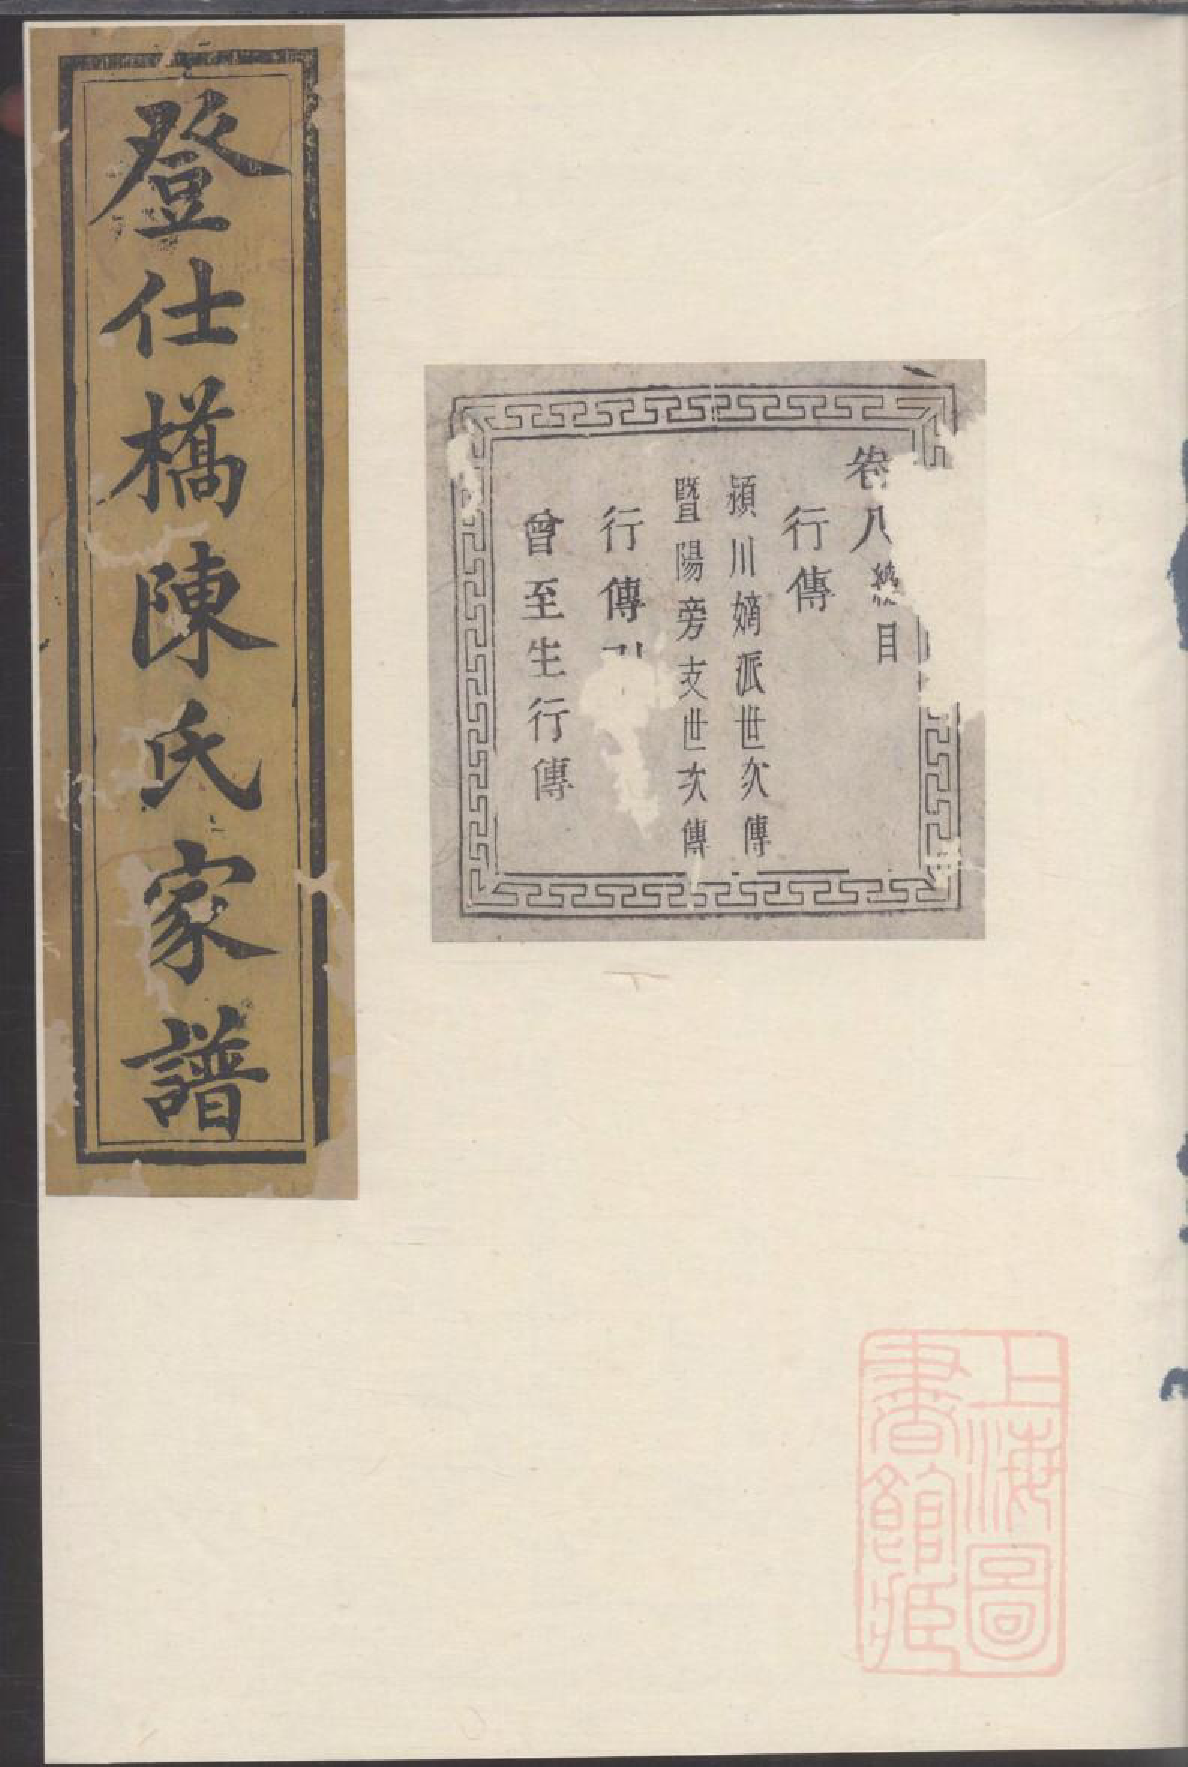 登仕橋陳氏家譜
卷八總目
行傳
潁川嫡派世次傳
暨陽旁支世次傳
行傳
曾至生行傳
上海圖
書館藏